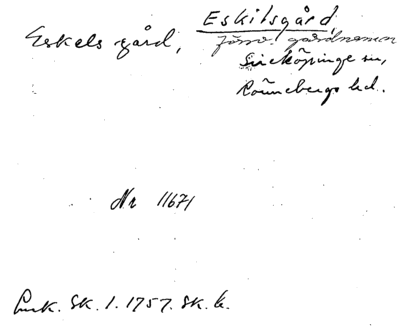 Eskilsgård,
Eskels gård,
försv. gårdnamn
Sireköpinge sn,
Rönnebergs hd.
Nr 11671
Lmk. Sk. 1. 1757. Sk. b.